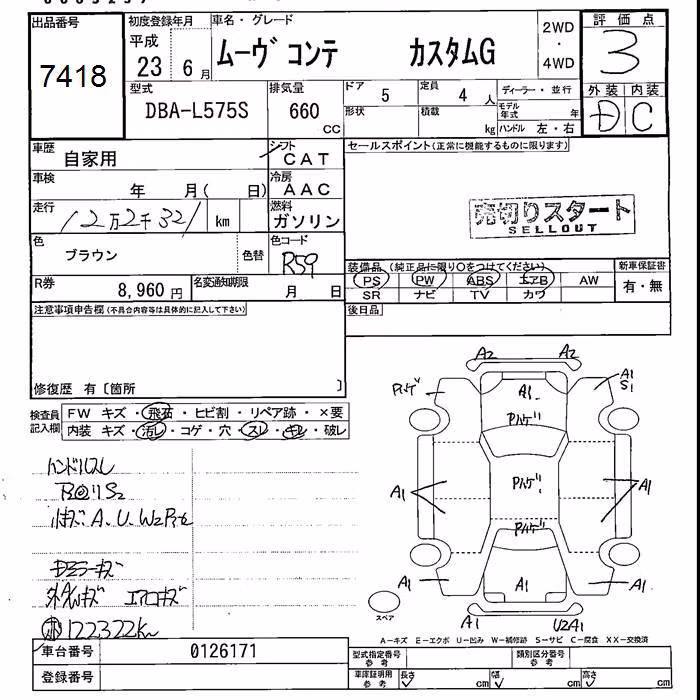 出品番号
7418
初度登録年月
平成
23 6月
車名・グレード
ムーヴ コンテ カスタムG
2WD
・
4WD
評価点
3
外装 内装
D C
型式
DBA-L575S
排気量
660
CC
ドア
5
定員
4 人
ディーラー・並行
形状
積載
kg
モデル年式 年
ハンドル 左・右
車歴
自家用
シフト
CAT
車検
年 月( 日)
冷房
AAC
走行
12万2千321 km
燃料
ガソリン
色
ブラウン
色替
色コード
R59
R券
8,960 円
名変通知期限
月 日
セールスポイント(正常に機能するものに限ります)
売切りスタート
SELLOUT
装備品 (純正品に限り○をつけてください)
PS PW ABS エアB AW
SR ナビ TV カワ
新車保証書
有・無
後日品
注意事項申告欄(不具合内容等は具体的に記入して下さい)
修復歴 有〔箇所 〕
検査員
記入欄
FW キズ・飛石・ヒビ割・リペア跡・×要
内装 キズ・汚レ・コゲ・穴・スレ・キレ・破レ
ハンドルスレ
A.U.W2
外タルキズ エアロキズ
122322km
A2 A2
Pハゲ A1 A1
S1
Pハゲ
A1 Pハゲ A1
Pハゲ
A1 A1 A1
A1 U2A1
スペア
A-キズ E-エクボ U-凹み W-補修跡 S-サビ C-腐食 XX-交換済
車台番号
0126171
登録番号
型式指定番号
参考
類別区分番号
参考
車庫証明用
参考
長さ cm 幅 cm 高さ cm